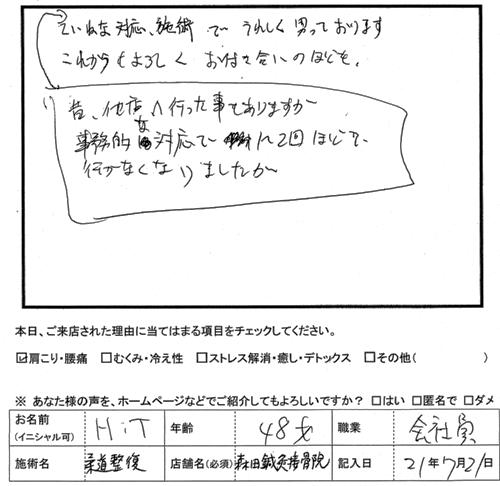 ていねな対応、施術で うれしく思っております
これからもよろしく お付き合いのほどを。
昔、他店へ行った事もありますが
事務的な対応で 1、2回ほどで
行かなくなりましたが
本日、ご来店された理由に当てはまる項目をチェックしてください。
☑肩こり・腰痛 □むくみ・冷え性 □ストレス解消・癒し・デトックス □その他( )
※ あなた様の声を、ホームページなどでご紹介してもよろしいですか？ □はい □匿名で □ダメ
お名前 (イニシャル可) H i T 年齢 48才 職業 会社員
施術名 柔道整復 店舗名(必須) 森田鍼灸接骨院 記入日 21年7月21日